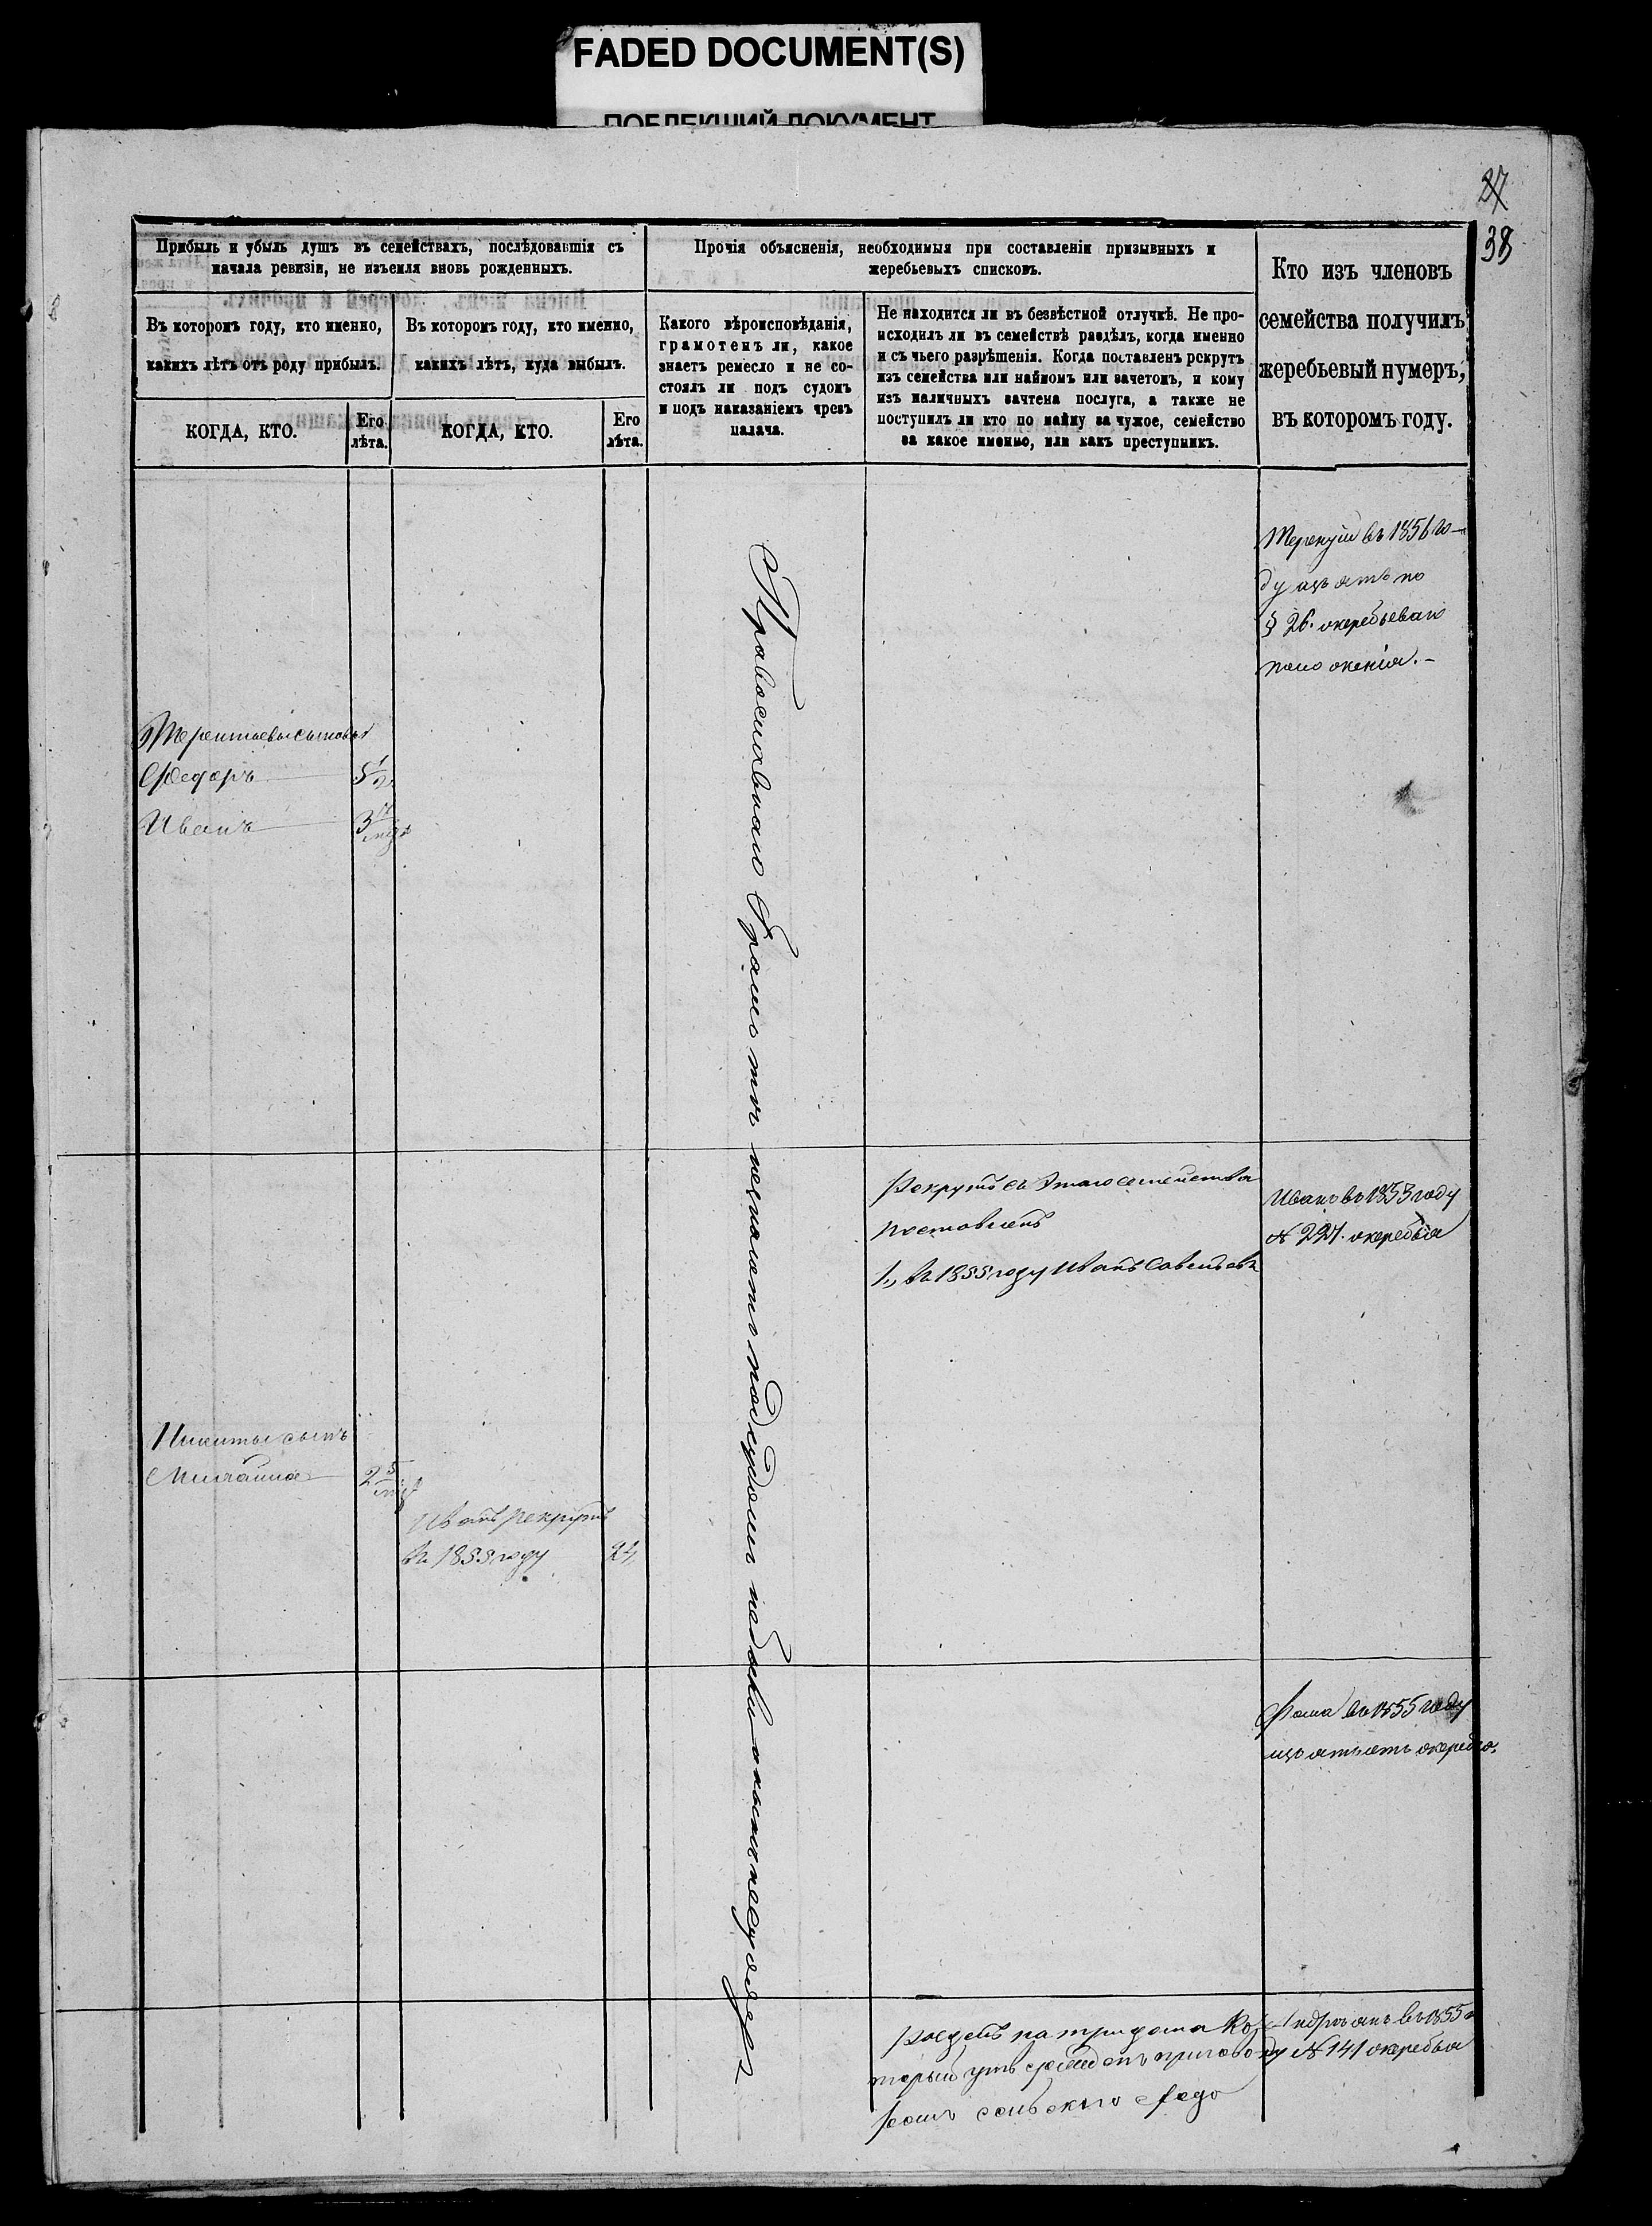 FADED DOCUMENT(S)
ПОБЛЕКШИЙ ДОКУМЕНТ
27
38
Прибыль и убыль душъ въ семействахъ, послѣдовавшія съ
начала ревизіи, не изъемля вновь рожденныхъ.
Въ которомъ году, кто именно,
какихъ лѣтъ отъ роду прибылъ.
КОГДА, КТО.
Его
лѣта.
Въ которомъ году, кто именно,
какихъ лѣтъ, куда выбылъ.
КОГДА, КТО.
Его
лѣта.
Прочія объясненія, необходимыя при составленіи призывныхъ и
жеребьевыхъ списковъ.
Какого вѣроисповѣданія,
грамотенъ ли, какое
знаетъ ремесло и не со-
стоялъ ли подъ судомъ
и подъ наказаніемъ чрезъ
палача.
Не находится ли въ безвѣстной отлучкѣ. Не про-
исходилъ ли въ семействѣ раздѣлъ, когда именно
и съ чьего разрѣшенія. Когда поставленъ рекрутъ
изъ семейства или наймомъ или зачетомъ, и кому
изъ наличныхъ зачтена послуга, а также не
поступилъ ли кто по найму за чужое, семейство
за какое именно, или какъ преступникъ.
Кто изъ членовъ
семейства получилъ
жеребьевый нумеръ,
въ которомъ году.
Терентій въ 1856 го-
ду изъятъ по
§ 26. жеребьеваго
положенія. -
Терентьевы сыновья
Федоръ 5 1/2
Иванъ 3
Православнаго Грамотъ незнаютъ подъ судомъ небыли
Рекрутъ съ этаго семейства
поставленъ
1, въ 1855 году Иванъ Савельевъ
Иванъ въ 1853 году
№ 227. жеребья
Никиты сынъ
Михайла 2
Иванъ рекрутъ
въ 1855 году 24
Фома въ 1855 году
изъятъ отъ жеребья.
Раздѣлъ на три дома Ко-
торый
сельскаго схода
въ 1855
№ 141 жеребья